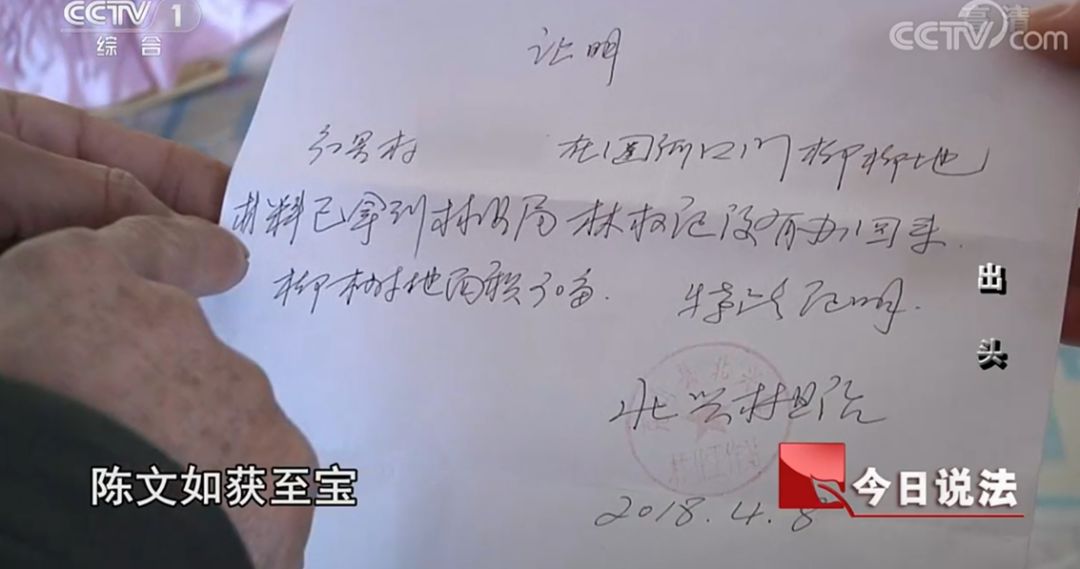 CCTV 1
综合
高清
CCTV com
证明
在 河口门柳树地
材料已拿到林业局林权证没有办回来.
柳树地面积30亩. 特此证明.
出头
北兴村
林业工作站
2018.4.8
陈文如获至宝
今日说法